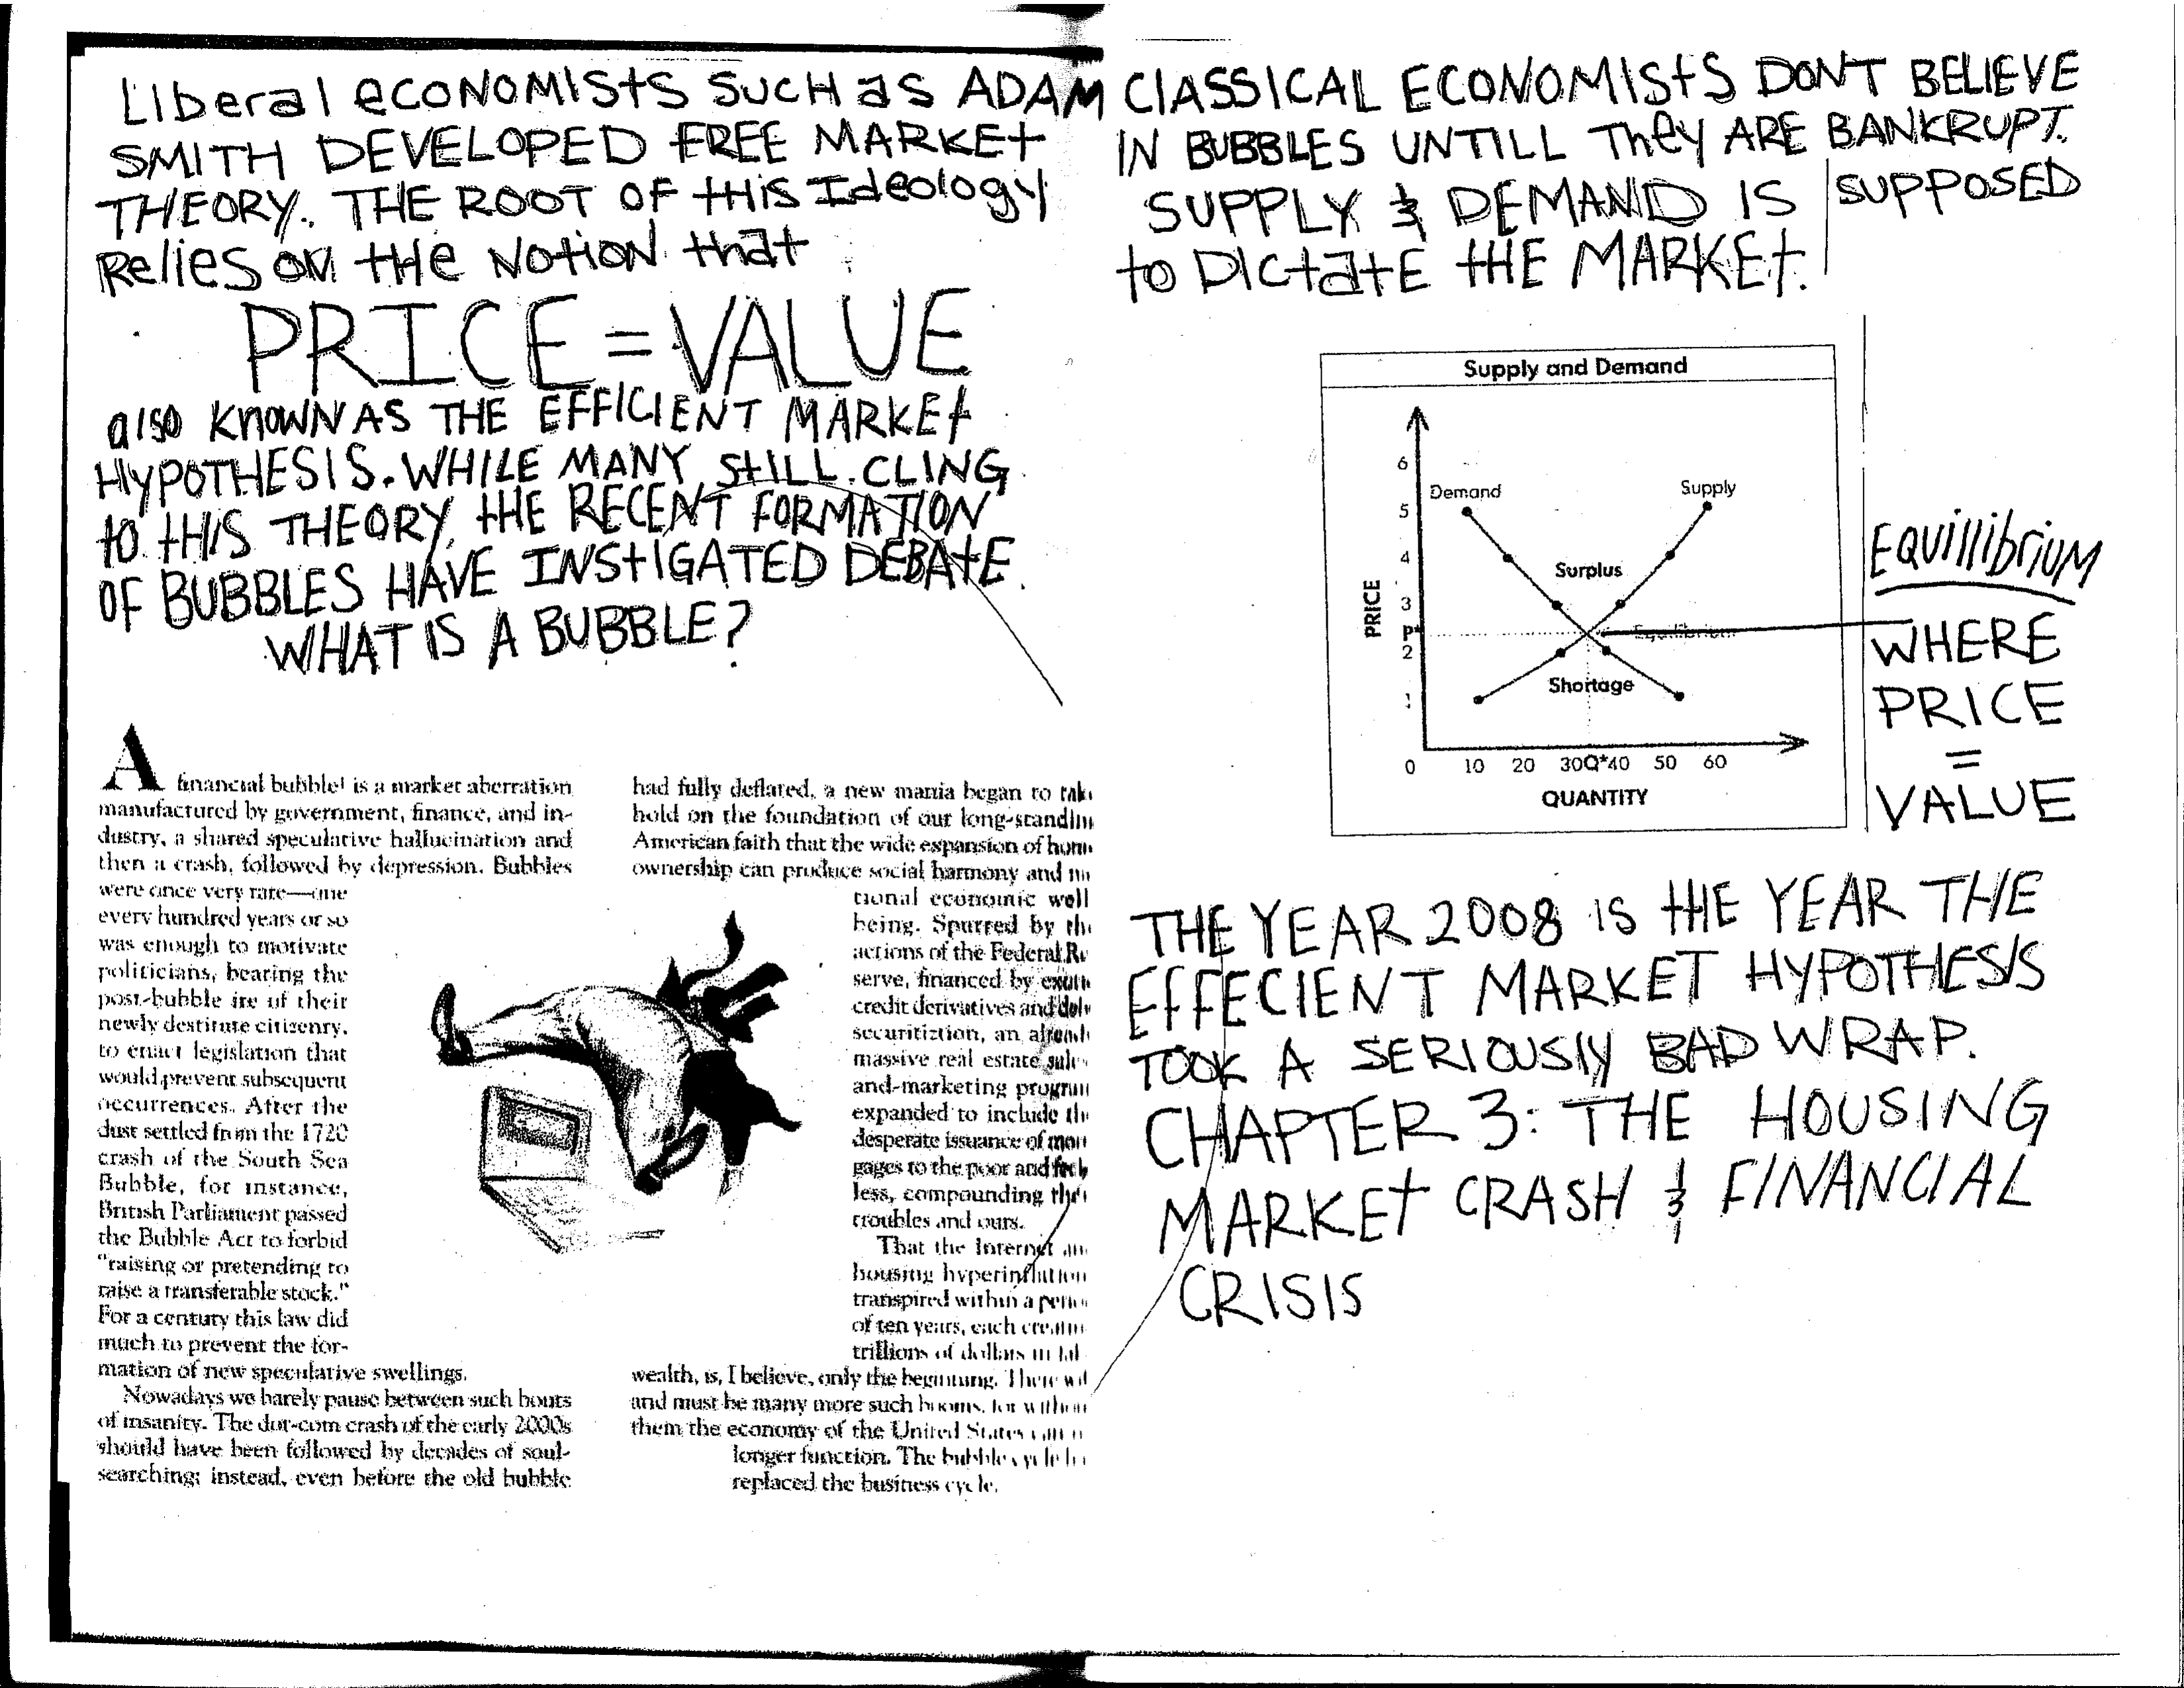 Liberal eCONOMIStS SucH as ADAM
SMITH DEVELOPED FREE MARKEt
THEORY. THE ROOT OF tHiS Ideology
Relies on tHe NOtiON that
PRICE = VALUE
also KnOWN AS THE EFFICIENT MARKEt
HYPOTHESIS. WHILE MANY StILL CLING
tO tHIS THEORY, tHE RECENT FORMATION
OF BUBBLES HAVE INStIGATED DEBAtE.
WHAT IS A BUBBLE?
A financial bubble¹ is a market aberration
manufactured by government, finance, and in-
dustry, a shared speculative hallucination and
then a crash, followed by depression. Bubbles
were once very rare—one
every hundred years or so
was enough to motivate
politicians, bearing the
post-bubble ire of their
newly destitute citizenry,
to enact legislation that
would prevent subsequent
occurrences. After the
dust settled from the 1720
crash of the South Sea
Bubble, for instance,
British Parliament passed
the Bubble Act to forbid
"raising or pretending to
raise a transferable stock."
For a century this law did
much to prevent the for-
mation of new speculative swellings.
Nowadays we barely pause between such bouts
of insanity. The dot-com crash of the early 2000s
should have been followed by decades of soul-
searching; instead, even before the old bubble
had fully deflated, a new mania began to
hold on the foundation of our long-standin
American faith that the wide expansion of
ownership can produce social harmony and
tional economic well
being. Spurred by
actions of the Federal Re
serve, financed by
credit derivatives and
securitiztion, an
massive real estate
and-marketing program
expanded to include
desperate issuance of
gages to the poor and
less, compounding
troubles and ours.
That the Internet
housing hyperinflation
transpired within a
of ten years, each
trillions of dollars in
wealth, is, I believe, only the beginning. There
and must be many more such booms, for
them the economy of the United States
longer function. The bubble cycle
replaced the business cycle.
ClASSICAL ECONOMIStS DON'T BELIEVE
IN BUBBLES UNTILL They ARE BANKRUPT.
SUPPLY & DEMAND IS SUPPOSED
to DICtatE tHE MARKEt.
Supply and Demand
6
Demand
Supply
5
4
Surplus
3
P*
Equilibrium
2
Shortage
1
0 10 20 30Q*40 50 60
PRICE
QUANTITY
EQUIllibriUM
WHERE
PRICE
=
VALUE
THE YEAR 2008 IS tHE YEAR THE
EFFECIENT MARKET HYPOTHESIS
TOOK A SERIOUSlY BAD WRAP.
CHAPTER 3: THE HOUSING
MARKEt CRASH & FINANCIAL
CRISIS